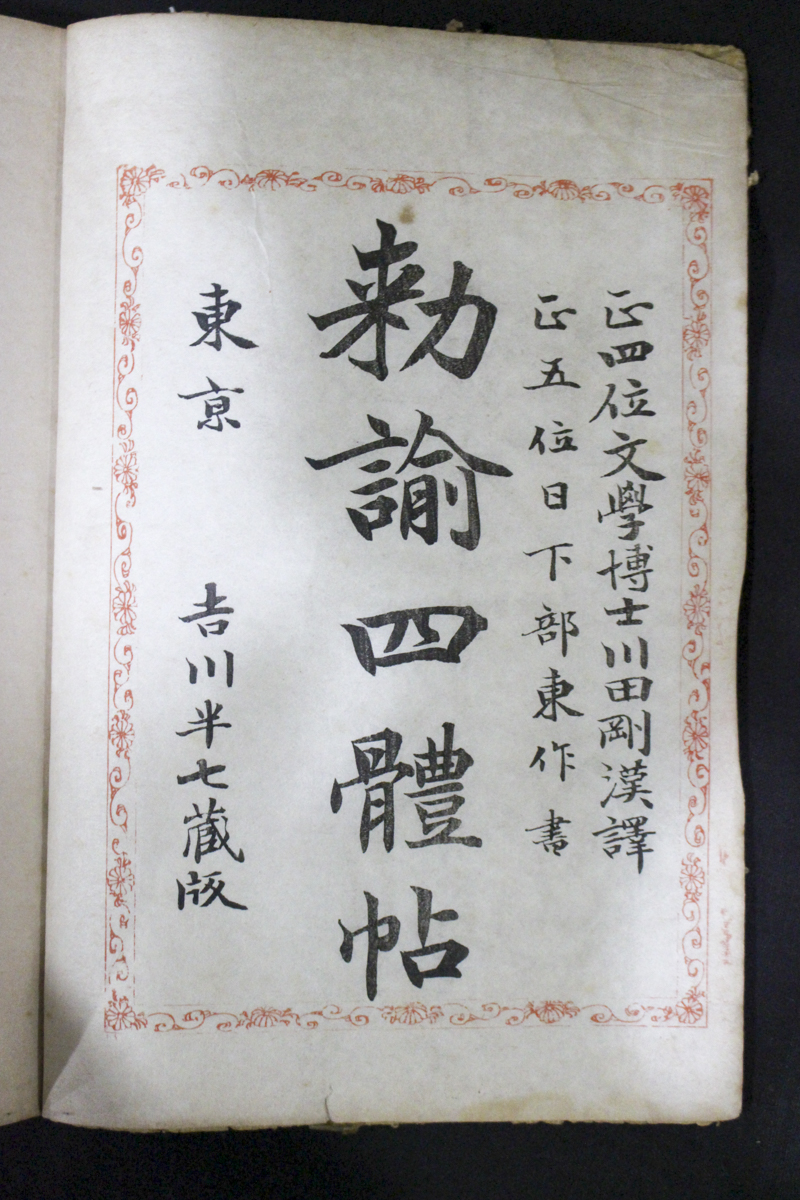 正四位文學博士川田剛漢譯
正五位日下部東作書
勅諭四體帖
東京 吉川半七藏版